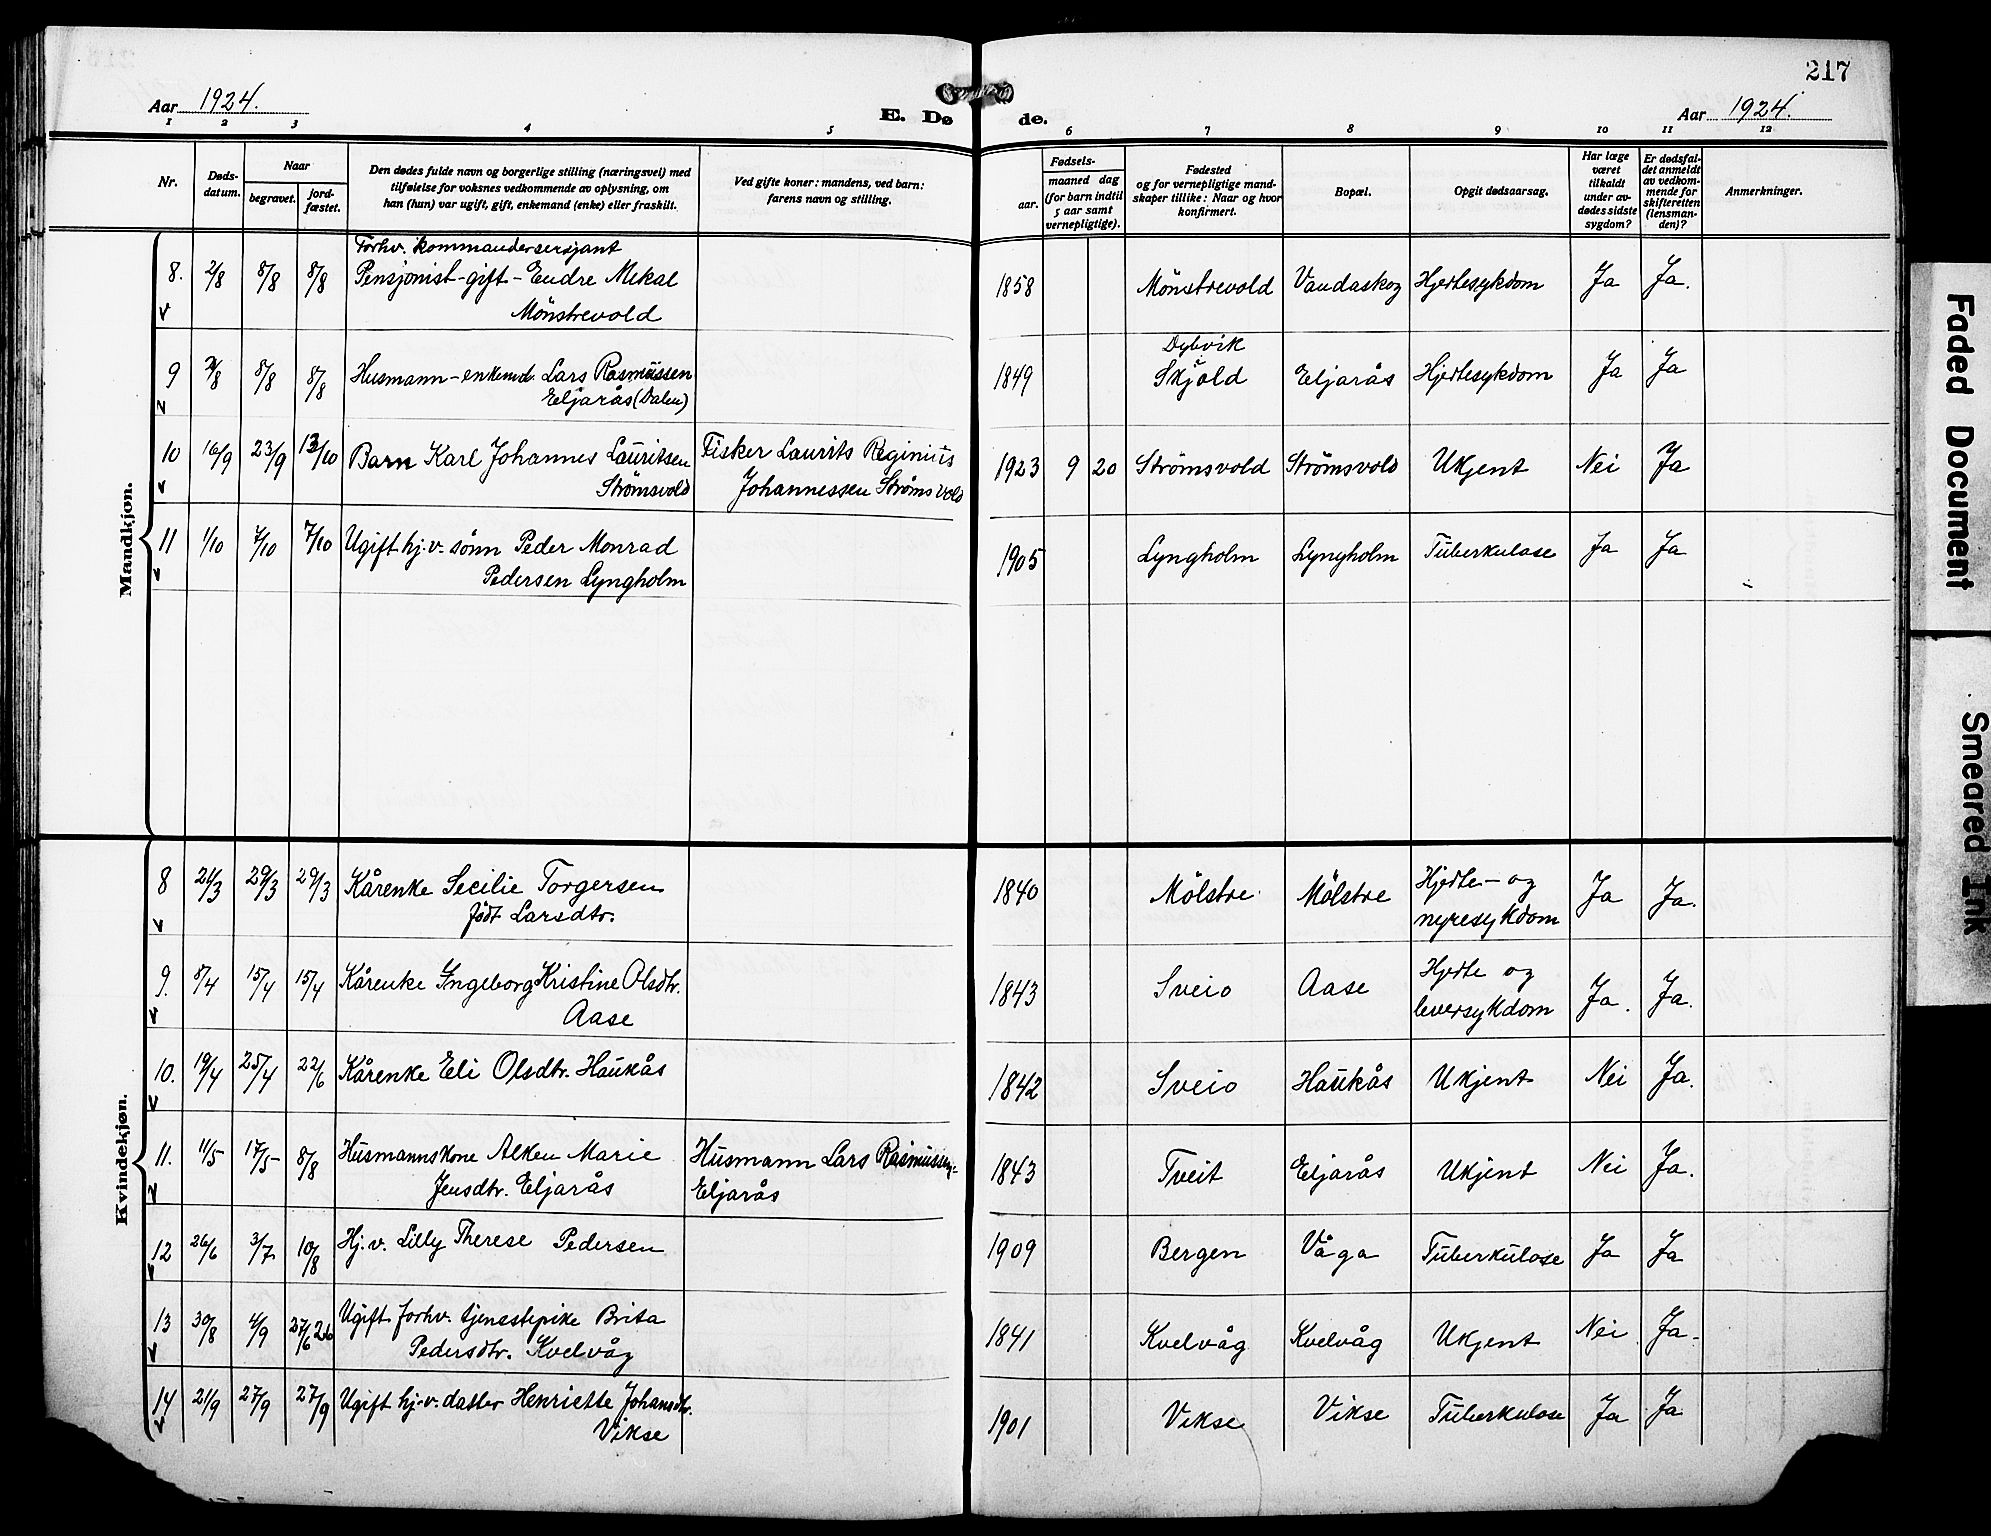 217
Aar 1924.
E. Dø
de.
Aar 1924.
1 2 3 4 5 6 7 8 9 10 11 12
Nr.
Døds-
datum.
Naar
begravet.
jord-
fæstet.
Den dødes fulde navn og borgerlige stilling (næringsvei) med
tilføielse for voksnes vedkommende av oplysning, om
han (hun) var ugift, gift, enkemand (enke) eller fraskilt.
Ved gifte koner: mandens, ved barn:
farens navn og stilling.
Fødsels-
aar.
maaned dag
(for barn indtil
5 aar samt
vernepligtige).
Fødested
og for vernepligtige mand-
skaper tillike: Naar og hvor
konfirmert.
Bopæl.
Opgit dødsaarsag.
Har læge
været
tilkaldt
under av-
dødes sidste
sygdom?
Er dødsfal-
det anmeldt
av vedkom-
mende for
skifteretten
(lensman-
den)?
Anmerkninger.
Mandkjøn.
Forhv. kommandersersjant
8. 2/8 8/8 8/8 Pensjonist - gift - Endre Mikal 1858 Mönstrevold Vandaskog Hjertesykdom Ja Ja.
Mönstrevold
Dybvik
9 2/8 8/8 8/8 Husmann - enkemd. Lars Rasmussen 1849 Skjold Eljarås Hjertesykdom Ja Ja
Eljarås (Dalen)
10 16/9 23/9 13/10 Barn Karl Johannes Lauritsen Fisker Laurits Reginius 1923 9 20 Strömsvold Strömsvold Ukjent Nei Ja
Strömsvold Johannessen Strömsvold
11 1/10 7/10 7/10 Ugift hj.v. sönn Peder Monrad 1905 Lyngholm Lyngholm Tuberkulose Ja Ja
Pedersen Lyngholm
Kvindekjøn.
8 21/3 29/3 29/3 Kårenke Secilie Torgersen 1840 Mölstre Mölstre Hjerte- og Ja Ja.
födt Larsdtr. nyresykdom
9. 8/4 15/4 15/4 Kårenke Ingeborg Kristine Olsdtr. 1843 Sveio Aase Hjerte og Ja. Ja.
Aase leversykdom
10. 19/4 25/4 22/6 Kårenke Eli Olsdtr. Haukås 1842 Sveio Haukås Ukjent Nei Ja.
11. 11/5 17/5 8/8 Husmannskone Alken Marie Husmann Lars Rasmussen- 1843 Tveit Eljarås Ukjent Nei Ja.
Jensdtr. Eljarås Eljarås
12 26/6 3/7 10/8 Hj.v. Lilly Therese Pedersen 1909 Bergen Våga Tuberkulose Ja Ja
13 30/8 4/9 27/6 26 Ugift forhv. tjenestepike Brita 1841 Kvelvåg Kvelvåg Ukjent Nei Ja-
Pedersdtr. Kvelvåg
14 21/9 27/9 27/9 Ugift hj.v. datter Henriette Johansdtr. 1901 Vikse Vikse Tuberkulose Ja Ja
Vikse
Faded Document
Smeared Ink